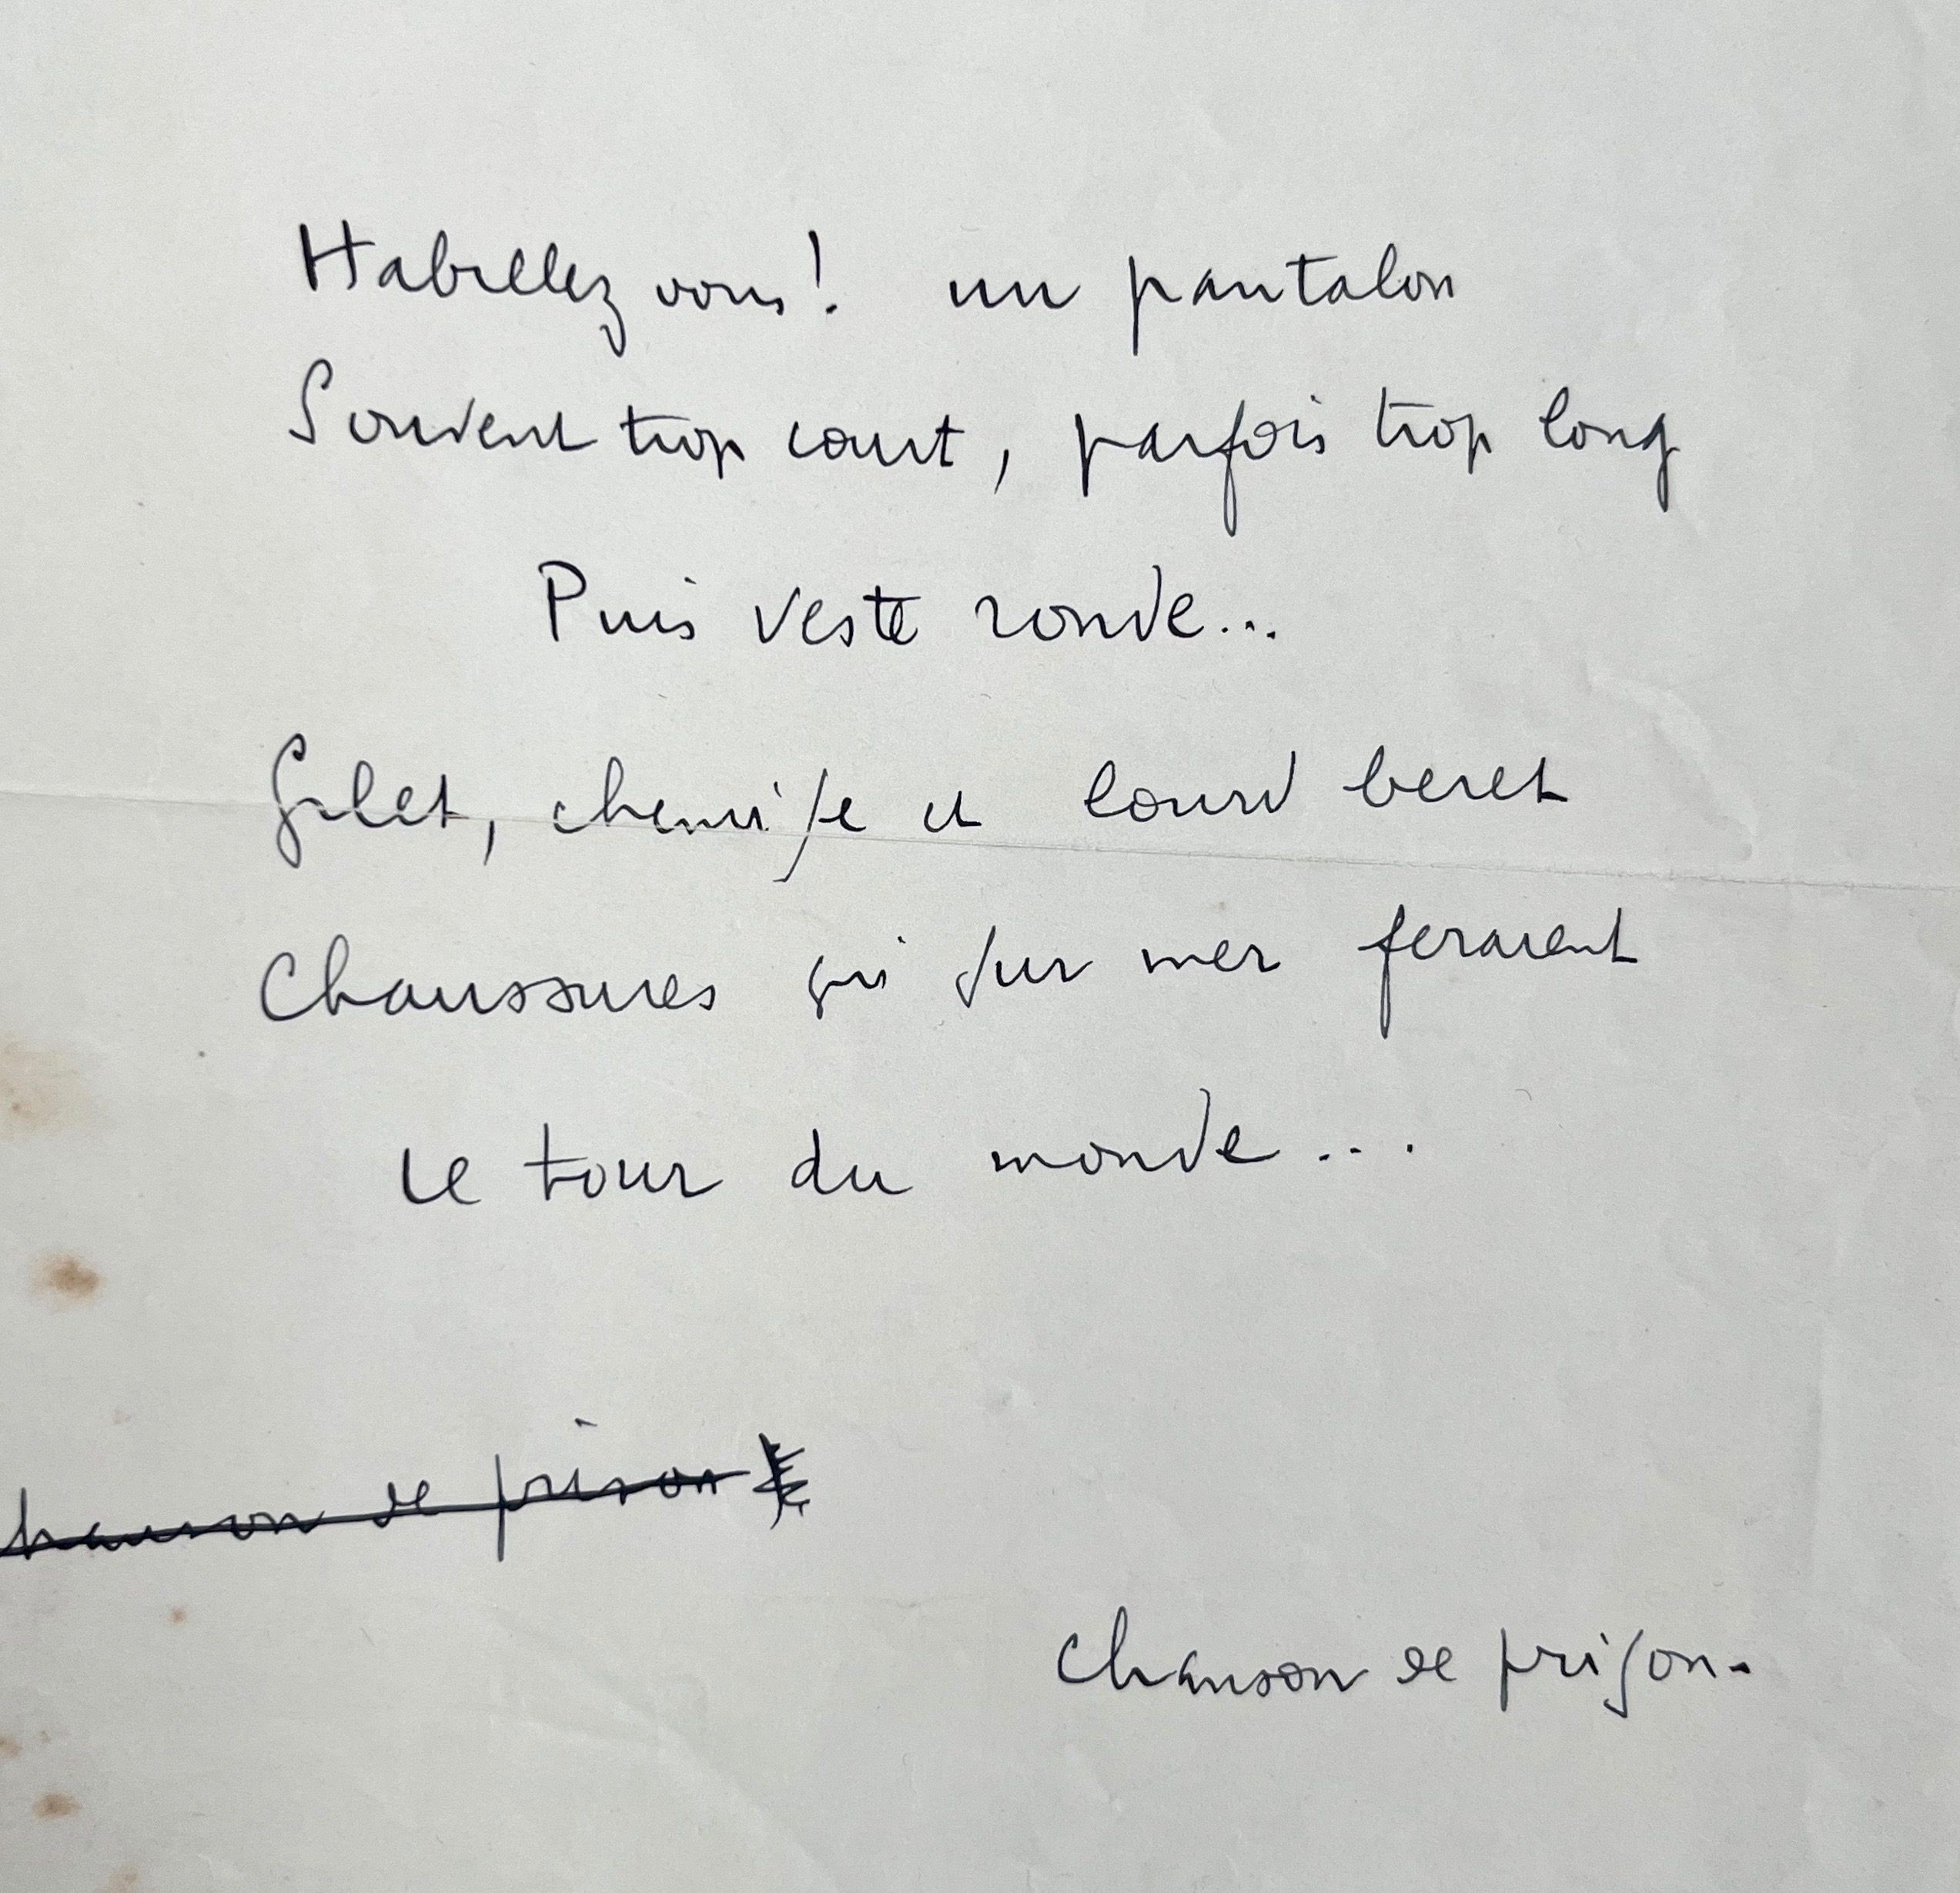 Habillez vous! un pantalon
Souvent trop court, parfois trop long
Puis veste ronde...
Gilet, chemise et lourd beret
Chaussures qui sur mer feraient
Le tour du monde...
hanson de prison
Chanson de prison.